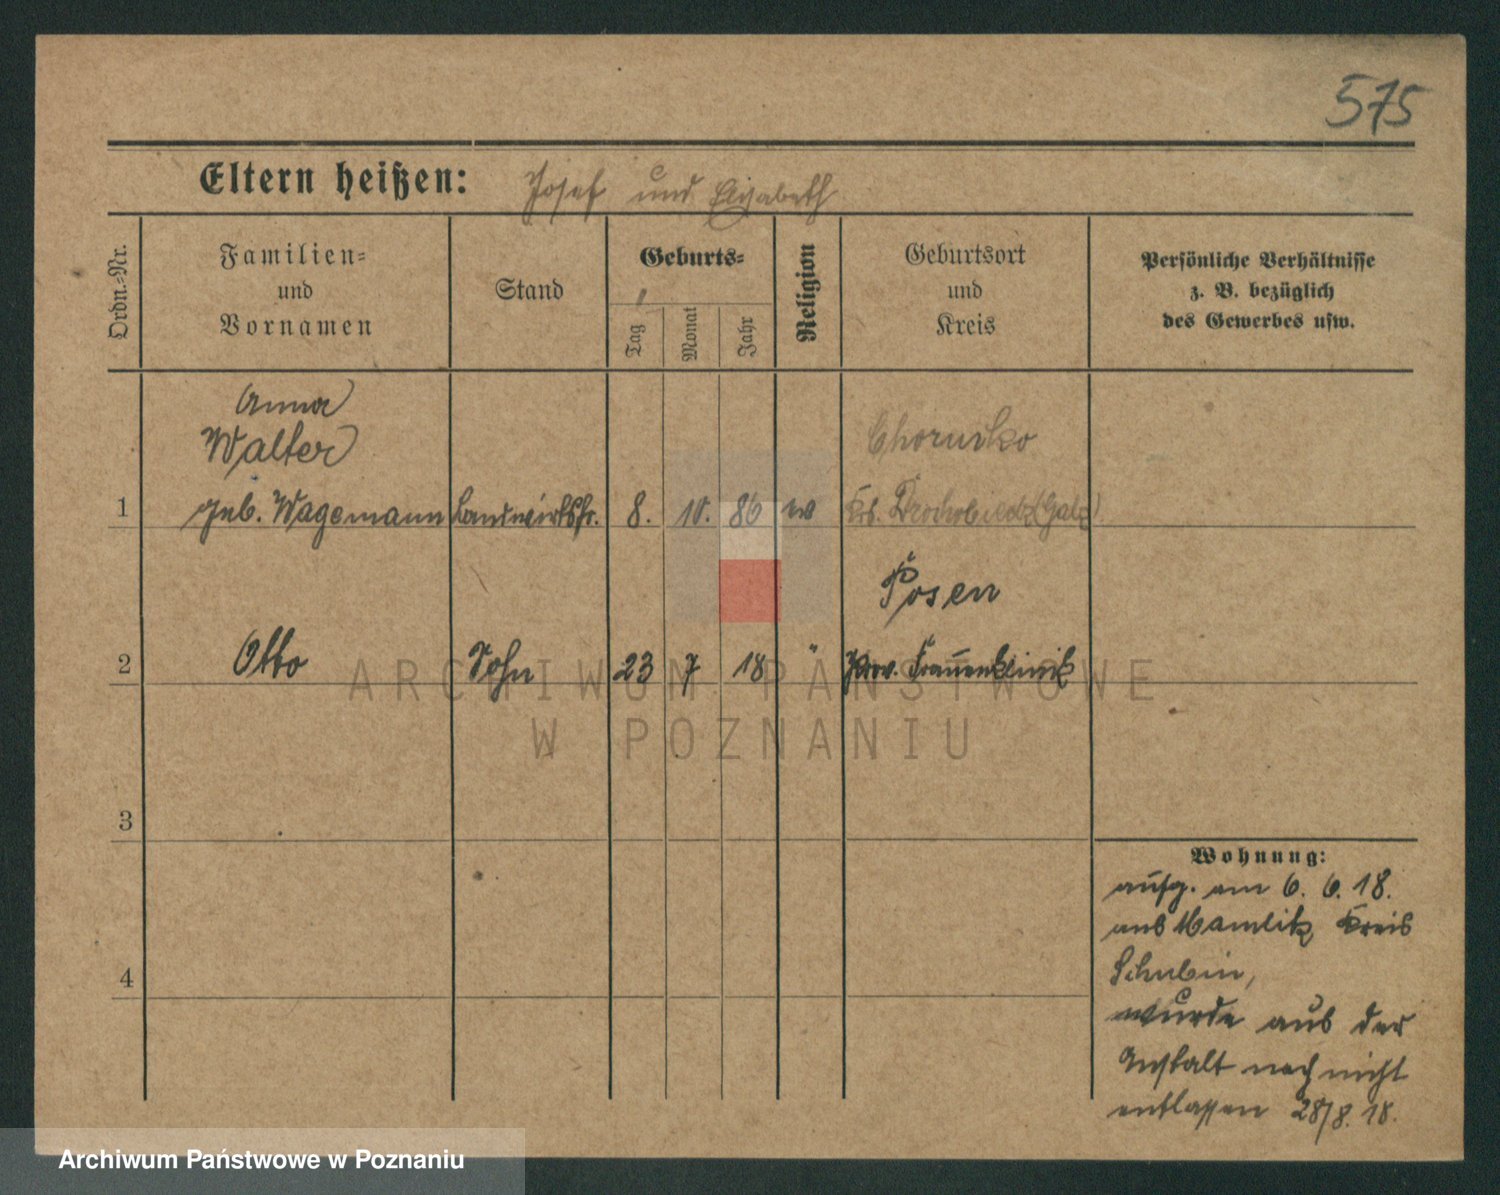 575
Eltern heißen: Josef und Elisabeth
Ordn.-Nr.
Familien-
und
Vornamen
Stand
Geburts-
Tag
Monat
Jahr
Religion
Geburtsort
und
Kreis
Persönliche Verhältnisse
z. B. bezüglich
des Gewerbes usw.
Anna
Walter
1 geb. Wagemann Landwirtsfr. 8. 10. 86
Krs. (Galz)
Posen
2 Otto Sohn 23 7 18 " Prov. Frauenklinik
3
4
Wohnung:
aufg. am 6. 6. 18.
aus Mamlitz Kreis
Schubin,
wurde aus der
Anstalt noch nicht
entlassen 28/8. 18.
ARCHIWUM PAŃSTWOWE
W POZNANIU
Archiwum Państwowe w Poznaniu